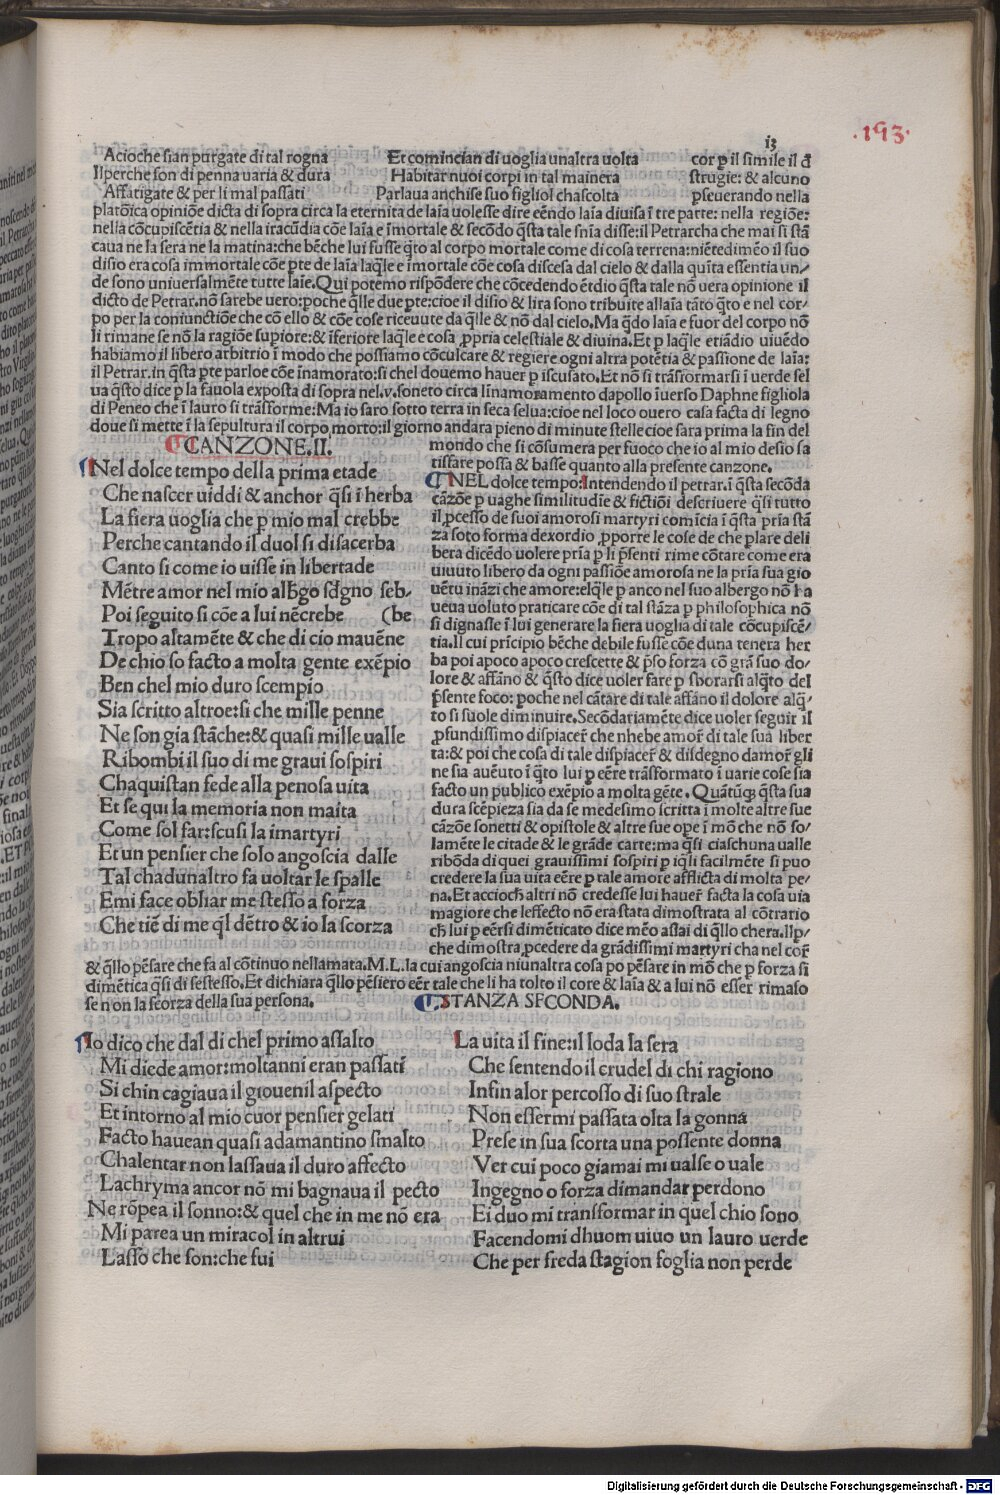 .193.
i3
Acioche sian purgate di tal rogna
Ilperche son di penna uaria & dura
Affatigate & per li mal passati
Et comincian di uoglia unaltra uolta
Habitar nuoi corpi in tal mainera
Parlaua anchise suo figliol chascolta
cor ꝑ il simile il đ
strugie: & alcuno
ꝑseuerando nella
platōica opiniōe dicta di sopra circa la eternita de laīa uolesse dire eēndo laīa diuisa ī tre parte: nella regiōe:
nella cōcupiscētia & nella iracūdia cōe laīa e īmortale & secōdo q̄sta tale sn̄ia disse: il Petrarcha che mai si stā
caua ne la sera ne la matina: che bēche lui fusse q̄to al corpo mortale come di cosa terrena: niētedimēo il suo
disio era cosa immortale cōe pte de laīa laq̄le e īmortale cōe cosa discesa dal cielo & dalla quīta essentia un/
de sono uniuersalmēte tutte laīe. Qui potemo rispōdere che cōcedendo ētdio q̄sta tale nō uera opinione il
dicto de Petrar. nō sarebe uero: poche q̄lle due pte: cioe il disio & lira sono tribuite allaīa tāto q̄to e nel cor/
po per la coniunctiōe che cō ello & cōe cose riceuute da q̄lle & nō dal cielo. Ma q̄do laīa e fuor del corpo nō
li rimane se nō la ragiōe supiore: & īferiore laq̄le e cosa ꝓpria celestiale & diuina. Et ꝑ laq̄le etiādio uiuēdo
habiamo il libero arbitrio ī modo che possiamo cōculcare & regiere ogni altra potētia & passione de laīa:
il Petrar. in q̄sta pte parloe cōe īnamorato: si chel douemo hauer ꝑ iscusato. Et nō si trāsformarsi ī uerde sel
ua q̄sto dice ꝑ la fauola exposta di sopra nel. v. soneto circa linamoramento dapollo īuerso Daphne figliola
di Peneo che ī lauro si trāsforme: Ma io saro sotto terra in seca selua: cioe nel loco ouero casa facta di legno
doue si mette ī la sepultura il corpo morto: il giorno andara pieno di minute stelle cioe sara prima la fin del
mondo che si cōsumera per fuoco che io al mio desio sa
tisfare possa & basse quanto alla presente canzone.
CANZONE. II.
Nel dolce tempo della prima etade
Che nascer uiddi & anchor q̄si ī herba
La fiera uoglia che ꝑ mio mal crebbe
Perche cantando il duol si disacerba
Canto si come io uisse in libertade
Mētre amor nel mio alb̄go sd̄gno seb/
Poi seguito si cōe a lui nēcrebe (be
Tropo altamēte & che di cio mauēne
De chio so facto a molta gente exēpio
Ben chel mio duro scempio
Sia scritto altroe: si che mille penne
Ne son gia stāche: & quasi mille ualle
Ribombi il suo di me graui sospiri
Chaquistan fede alla penosa uita
Et se qui la memoria non maita
Come sol far: scusi la imartyri
Et un pensier che solo angoscia dalle
Tal chadunaltro fa uoltar le spalle
Emi face obliar me stesso a forza
Che tiē di me q̄l dētro & io la scorza
NEL dolce tempo: Intendendo il petrar. ī q̄sta secōda
cāzōe ꝑ uaghe similitudīe & fictiōi descriuere q̄si tutto
il ꝓcesso de suoi amorosi martyri comīcia ī q̄sta prīa stā
za soto forma dexordio ꝓporre le cose de che plare deli
bera dicēdo uolere prīa ꝑ li p̄senti rime cōtare come era
uiuuto libero da ogni passiōe amorosa ne la prīa sua gio
uētu ināzi che amore: elq̄le ꝑ anco nel suo albergo nō ha
ueua uoluto praticare cōe di tal stāza ꝑ philosophica nō
si dignasse ī lui generare la fiera uoglia di tale cōcupiscē/
tia. Il cui prīcipio bēche debile fusse cōe duna tenera her
ba poi apoco apoco crescette & p̄so forza cō grā suo do/
lore & affāno & q̄sto dice uoler fare ꝑ sborarsi alq̄to del
p̄sente foco: poche nel cātare di tale affāno il dolore alq̄/
to si suole diminuire. Secōdariamēte dice uoler seguir il
ꝓfundissimo dispiacer̄ che nhebe amor̄ di tale sua liber
ta: & poi che cosa di tale dispiacer̄ & disdegno damor̄ gli
ne sia auēuto ī q̄to lui ꝑ eēre trāsformato ī uarie cose sia
facto un publico exēpio a molta gēte. Quātūq; q̄sta sua
dura scēpieza sia da se medesimo scritta ī molte altre sue
cāzōe sonetti & opistole & altre sue ope ī mō che nō so/
lamēte le citade & le grāde carte: ma q̄si ciaschuna ualle
ribōda di quei grauissimi sospiri ꝑ iq̄li facilmēte si puo
credere la sua uita eēre ꝑ tale amore afflicta di molta pe/
na. Et accioch̄ altri nō credesse lui hauer̄ facta la cosa uia
magiore che leffecto nō era stata dimostrata al cōtrario
ch̄ lui ꝑ eērsi dimēticato dice mēo assai di q̄llo chera. Ilp/
che dimostra ꝓcedere da grādissimi martyri cha nel cor̄
& q̄llo pēsare che fa al cōtinuo nellamata. M. L. la cui angoscia niunaltra cosa po pēsare in mō che ꝑ forza si
dimētica q̄si di sestesso. Et dichiara q̄llo pēsiero eēr tale che li ha tolto il core & laīa & a lui nō esser rimaso
se non la scorza della sua persona.
STANZA SECONDA.
Io dico che dal di chel primo assalto
Mi diede amor: moltanni eran passati
Si chin cagiaua il giouenil aspecto
Et intorno al mio cuor pensier gelati
Facto hauean quasi adamantino smalto
Chalentar non lassaua il duro affecto
Lachryma ancor nō mi bagnaua il pecto
Ne rōpea il sonno: & quel che in me nō era
Mi parea un miracol in altrui
Lasso che son: che fui
La uita il fine: il loda la sera
Che sentendo il crudel di chi ragiono
Infin alor percosso di suo strale
Non essermi passata olta la gonna
Prese in sua scorta una possente donna
Ver cui poco giamai mi ualse o uale
Ingegno o forza dimandar perdono
Ei duo mi transformar in quel chio sono
Facendomi dhuom uiuo un lauro uerde
Che per freda stagion foglia non perde
Digitalisierung gefördert durch die Deutsche Forschungsgemeinschaft - DFG